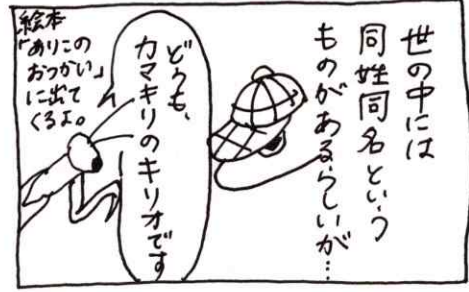 世の中には
同姓同名という
ものがあるらしいが…
どうも、
カマキリのキリオです
絵本
「ありこの
おつかい」
に出て
くるよ。